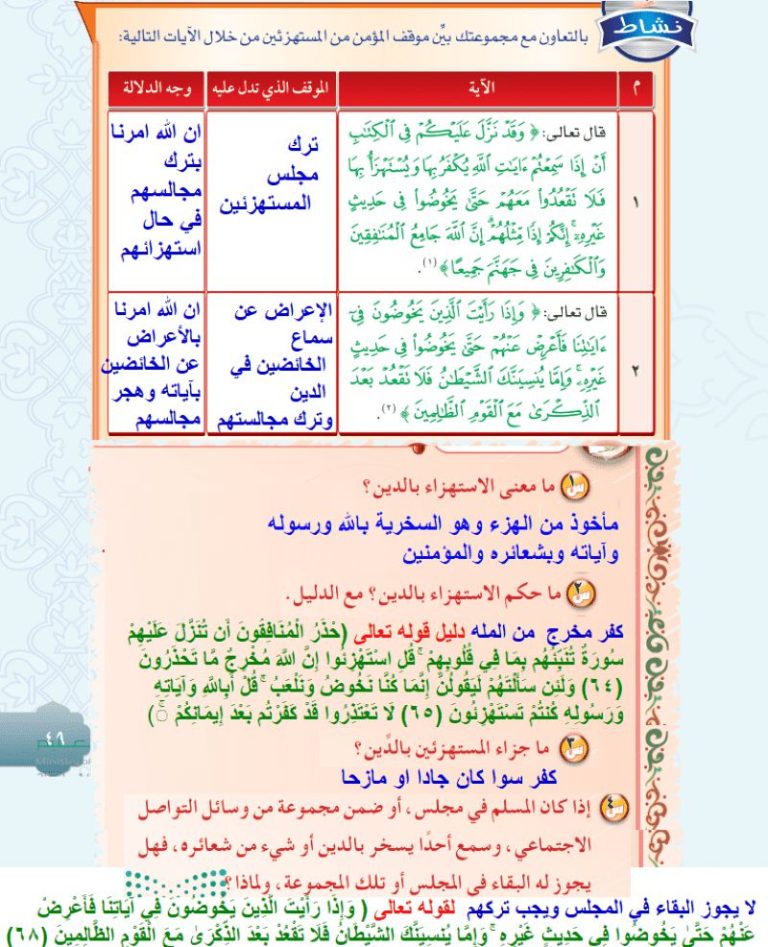 نشاط
بالتعاون مع مجموعتك بيِّن موقف المؤمن من المستهزئين من خلال الآيات التالية:
م
الآية
الموقف الذي تدل عليه
وجه الدلالة
١
قال تعالى: ﴿ وَقَدْ نَزَّلَ عَلَيْكُمْ فِي الْكِتَابِ
أَنْ إِذَا سَمِعْتُمْ ءَايَاتِ اللَّهِ يُكْفَرُ بِهَا وَيُسْتَهْزَأُ بِهَا
فَلَا تَقْعُدُوا مَعَهُمْ حَتَّىٰ يَخُوضُوا فِي حَدِيثٍ
غَيْرِهِ إِنَّكُمْ إِذًا مِّثْلُهُمْ إِنَّ اللَّهَ جَامِعُ الْمُنَافِقِينَ
وَالْكَافِرِينَ فِي جَهَنَّمَ جَمِيعًا ﴾(١).
ترك
مجلس
المستهزئين
ان الله امرنا
بترك
مجالسهم
في حال
استهزائهم
٢
قال تعالى: ﴿ وَإِذَا رَأَيْتَ الَّذِينَ يَخُوضُونَ فِي
ءَايَاتِنَا فَأَعْرِضْ عَنْهُمْ حَتَّىٰ يَخُوضُوا فِي حَدِيثٍ
غَيْرِهِ وَإِمَّا يُنسِيَنَّكَ الشَّيْطَانُ فَلَا تَقْعُدْ بَعْدَ
الذِّكْرَىٰ مَعَ الْقَوْمِ الظَّالِمِينَ ﴾(٢).
الإعراض عن
سماع
الخائضين في
الدين
وترك مجالستهم
ان الله امرنا
بالأعراض
عن الخائضين
بآياته وهجر
مجالسهم
س١ ما معنى الاستهزاء بالدين؟
مأخوذ من الهزء وهو السخرية بالله ورسوله
وآياته وبشعائره والمؤمنين
س٢ ما حكم الاستهزاء بالدين؟ مع الدليل.
كفر مخرج من المله دليل قوله تعالى (حْذَرُ الْمُنَافِقُونَ أَن تُنَزَّلَ عَلَيْهِمْ
سُورَةٌ تُنَبِّئُهُم بِمَا فِي قُلُوبِهِمْ ۚ قُلِ اسْتَهْزِئُوا إِنَّ اللَّهَ مُخْرِجٌ مَّا تَحْذَرُونَ
(٦٤) وَلَئِن سَأَلْتَهُمْ لَيَقُولُنَّ إِنَّمَا كُنَّا نَخُوضُ وَنَلْعَبُ ۚ قُلْ أَبِاللَّهِ وَآيَاتِهِ
وَرَسُولِهِ كُنتُمْ تَسْتَهْزِئُونَ (٦٥) لَا تَعْتَذِرُوا قَدْ كَفَرْتُم بَعْدَ إِيمَانِكُمْ ۚ)
س٣ ما جزاء المستهزئين بالدِّين؟
كفر سوا كان جادا او مازحا
س٤ إذا كان المسلم في مجلس، أو ضمن مجموعة من وسائل التواصل
الاجتماعي، وسمع أحدًا يسخر بالدين أو شيء من شعائره، فهل
يجوز له البقاء في المجلس أو تلك المجموعة، ولماذا؟
لا يجوز البقاء في المجلس ويجب تركهم لقوله تعالى ( وَإِذَا رَأَيْتَ الَّذِينَ يَخُوضُونَ فِي آيَاتِنَا فَأَعْرِضْ
عَنْهُمْ حَتَّىٰ يَخُوضُوا فِي حَدِيثٍ غَيْرِهِ ۚ وَإِمَّا يُنسِيَنَّكَ الشَّيْطَانُ فَلَا تَقْعُدْ بَعْدَ الذِّكْرَىٰ مَعَ الْقَوْمِ الظَّالِمِينَ (٦٨)
٤٦